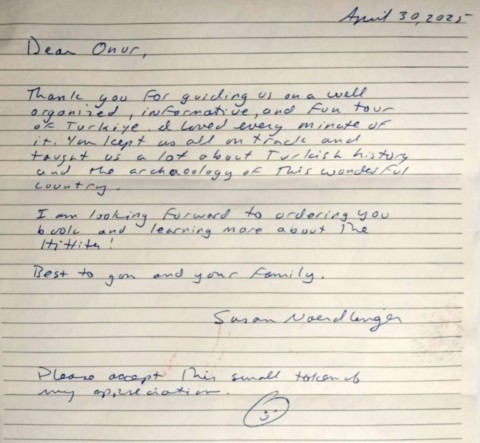 April 30, 2025
Dear Onur,
Thank you for guiding us on a well
organized, informative, and fun tour
of Turkiye. I loved every minute of
it. You kept us all on track and
taught us a lot about Turkish history
and the archaeology of This wonderful
country.
I am looking forward to ordering you
book and learning more about The
Hittites!
Best to you and your family.
Susan Noerdlinger
Please accept This small token of
my appreciation.